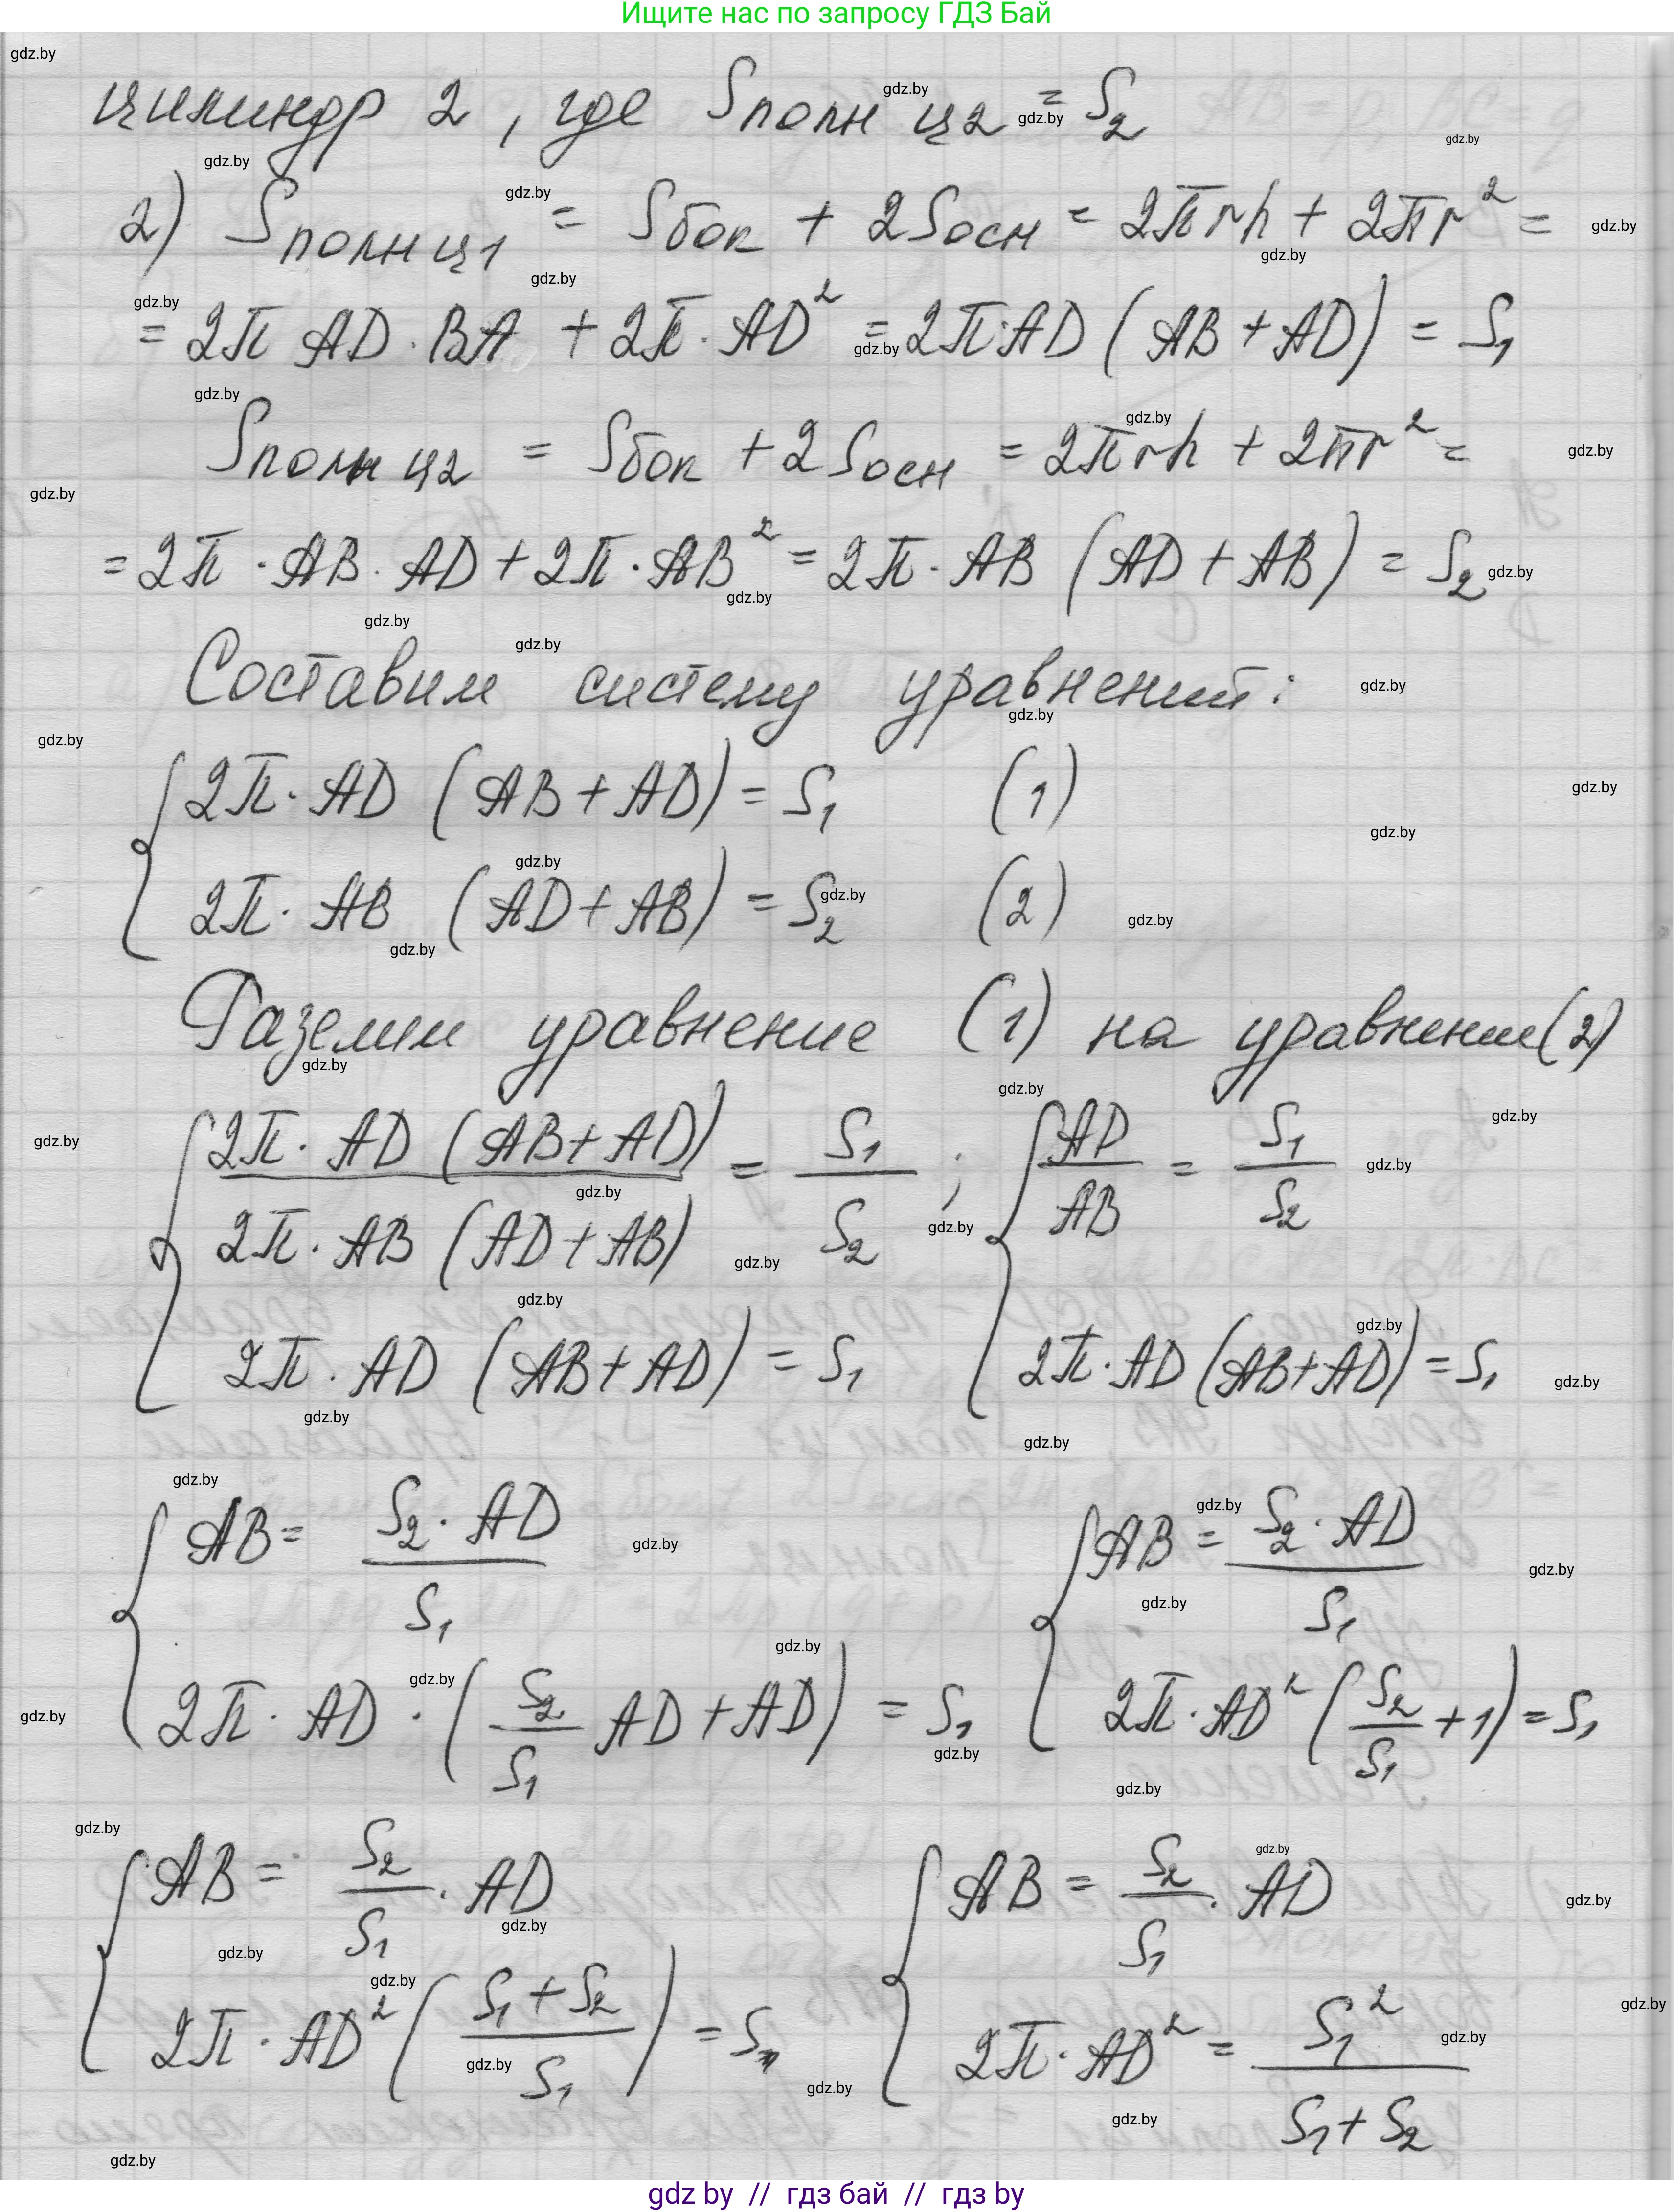 Ищите нас по запросу ГДЗ Бай
цилиндр 2, где Sполн ц2 = S₂
2) Sполн ц1 = Sбок + 2Sосн = 2πrh + 2πr² =
= 2π AD · BA + 2π · AD² = 2π·AD (AB + AD) = S₁
Sполн ц2 = Sбок + 2Sосн = 2πrh + 2πr² =
= 2π · AB · AD + 2π · AB² = 2π · AB (AD + AB) = S₂
Составим систему уравнений:
{ 2π · AD (AB + AD) = S₁ (1)
2π · AB (AD + AB) = S₂ (2)
Разделим уравнение (1) на уравнение (2)
{ 2π · AD (AB + AD) / 2π · AB (AD + AB) = S₁ / S₂ ; { AD / AB = S₁ / S₂
2π · AD (AB + AD) = S₁ 2π · AD (AB + AD) = S₁
{ AB = S₂ · AD / S₁ { AB = S₂ · AD / S₁
2π · AD · (S₂ / S₁ AD + AD) = S₁ 2π · AD² (S₂ / S₁ + 1) = S₁
{ AB = S₂ / S₁ · AD { AB = S₂ / S₁ · AD
2π · AD² (S₁ + S₂ / S₁) = S₁ 2π · AD² = S₁² / S₁ + S₂
gdz by // гдз бай // гдз by